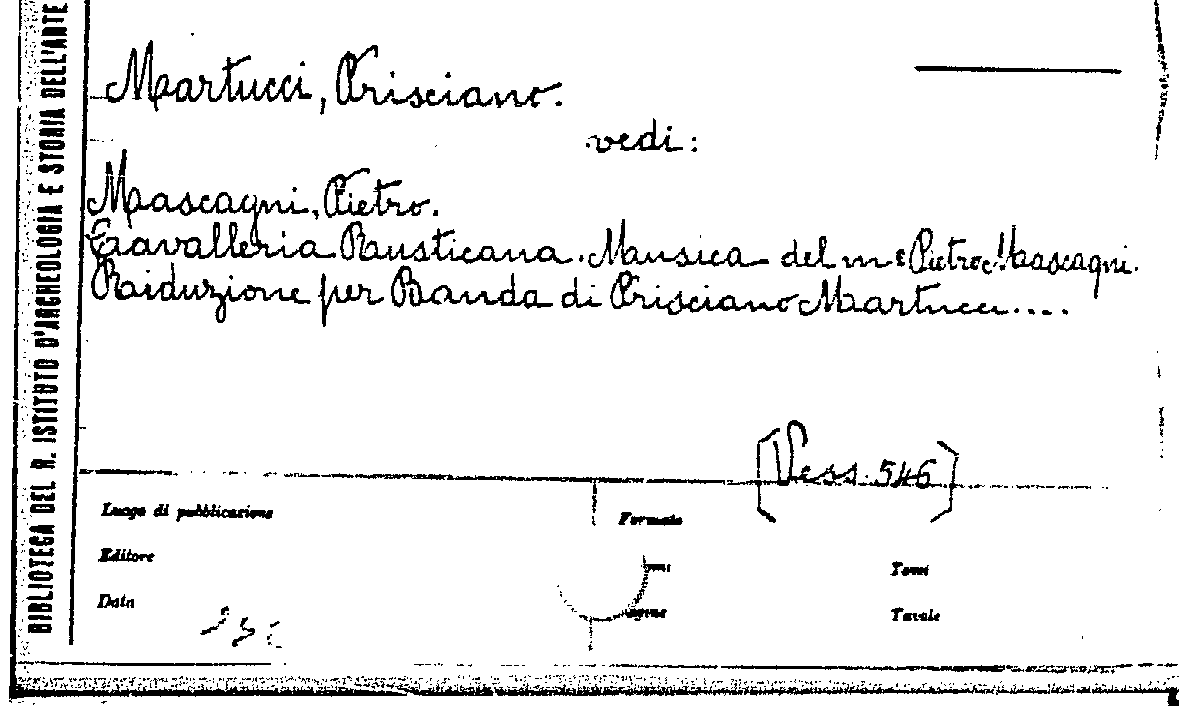 BIBLIOTECA DEL R. ISTITUTO D'ARCHEOLOGIA E STORIA DELL'ARTE
Martucci, Prisciano.
vedi:
Mascagni, Pietro.
Cavalleria Rusticana. Musica del m° Pietro Mascagni.
Riduzione per Banda di Prisciano Martucci....
[Vess. 546]
Luogo di pubblicazione
Formato
Editore
Tomi
Data
Tavole